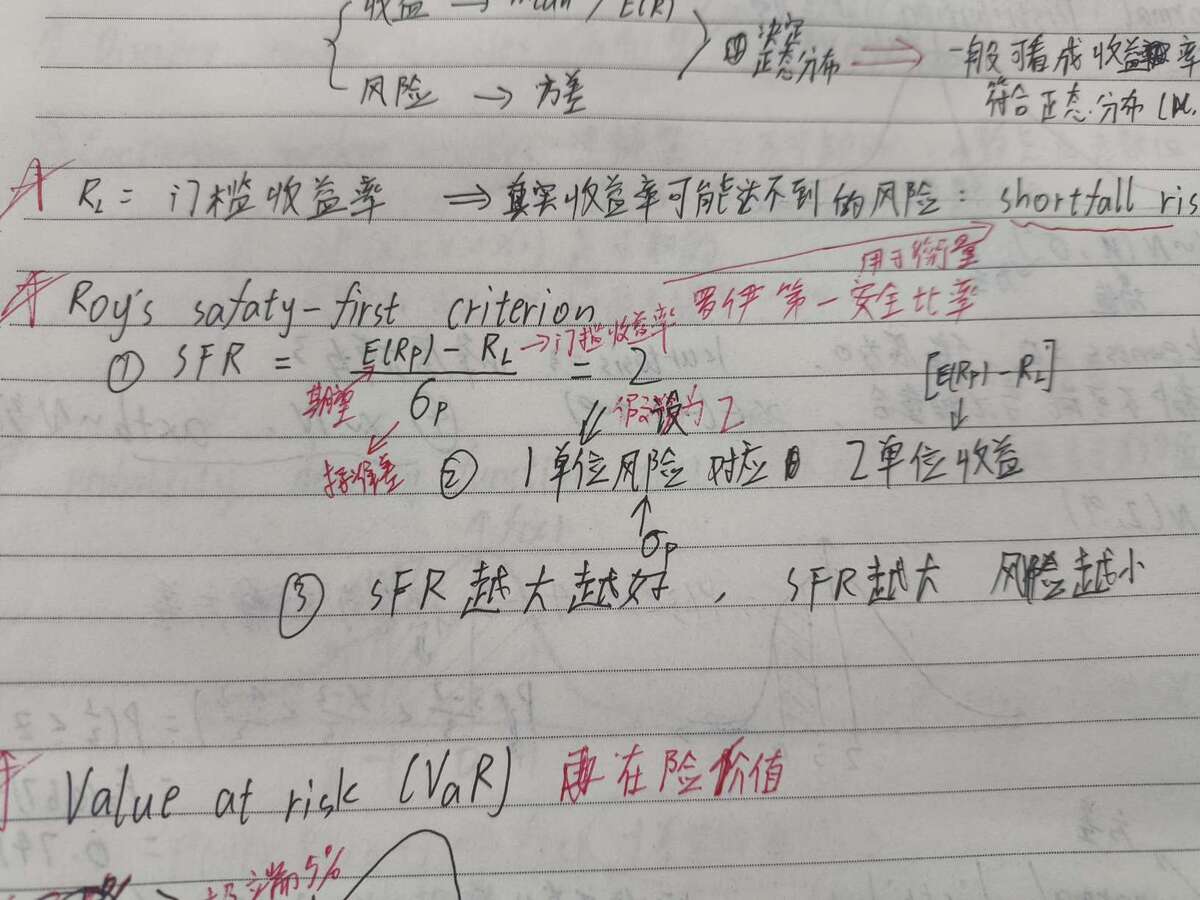 收益 → mean / E(R)
决定
正态分布 ⇒ 一般可看成收益率
风险 → 方差
符合正态分布
R_L = 门槛收益率 ⇒ 真实收益率可能达不到的风险: shortfall ris
用于衡量
Roy's safaty-first criterion 罗伊第一安全比率
① SFR = E(Rp) - R_L / σp = 2
→门槛收益率
[E(Rp) - R_L]
期望
假设为2
标准差
② 1单位风险 对应 2单位收益
σp
③ SFR 越大越好, SFR越大 风险越小
Value at risk (VaR) 在险价值
5%